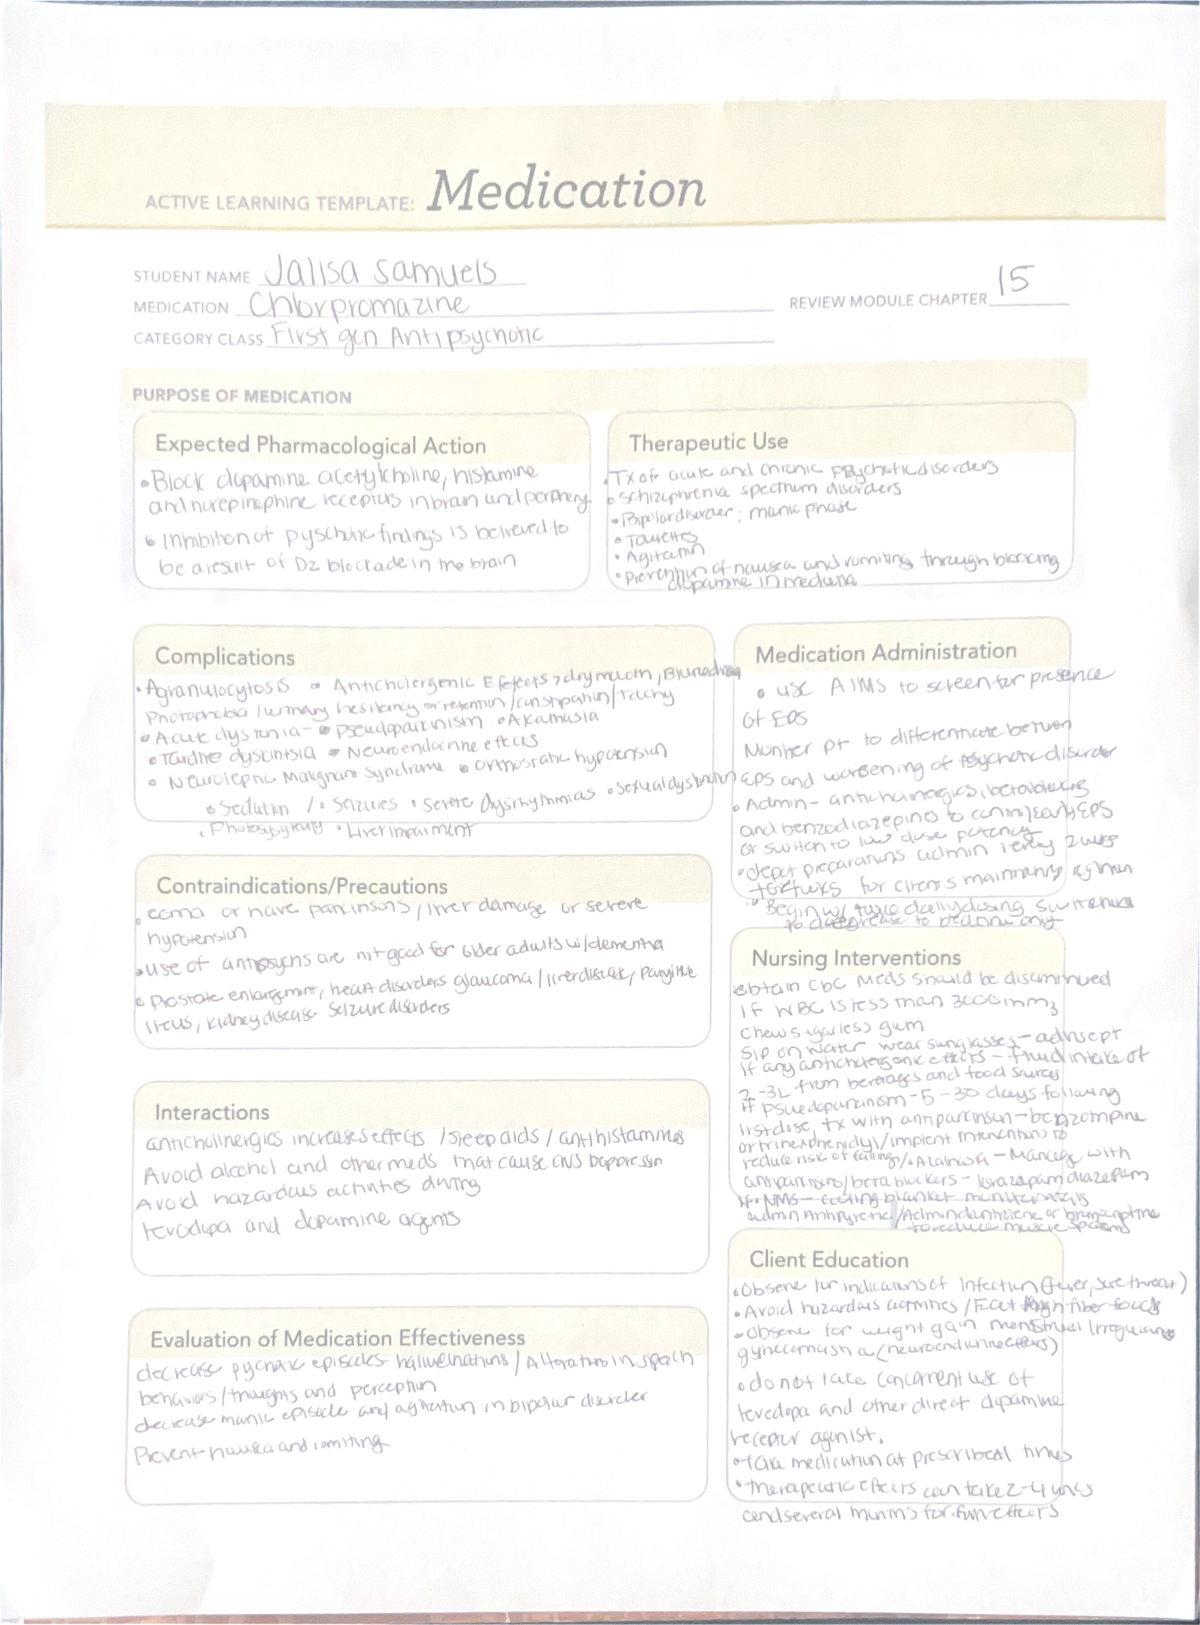 ACTIVE LEARNING TEMPLATE: Medication
STUDENT NAME Jalisa Samuels
MEDICATION Chlorpromazine
REVIEW MODULE CHAPTER 15
CATEGORY CLASS First gen Antipsychotic
PURPOSE OF MEDICATION
Expected Pharmacological Action
• Block dopamine acetylcholine, histamine
and norepinephrine receptors in brain and periphery
• Inhibition of pyschotic findings is believed to
be a result of D2 blockade in the brain
Therapeutic Use
• Tx of acute and chronic psychotic disorders
• Schizphrenia spectrum disorders
• Bipolar disorder: manic phase
• Tourettes
• Agitation
• Prevention of nausea and vomiting through blocking
dopamine in medulla
Complications
• Agranulocytosis • Anticholergenic Effects > dry mouth, Blurred
Photophobia / urinary hesitency or retention / constipation / tachy
• Acute dystonia - • Pseudoparkinism •
• Tardive • Neuroendocrine effects
• Neuroleptic Malignant Syndrome • orthostatic hypotension
• Sedation / • Seizures • severe dysrhythmias • Sexual dysfunction
• Liver impairment
Contraindications/Precautions
• coma or have parkinsons / liver damage or severe
hypotension
• use of are not good for older adults w/ dementia
• prostate enlargement, heart disorders glaucoma / liver disease,
ileus, kidney disease seizure disorders
Interactions
anticholinergics increases effects / sleep aids / antihistamines
Avoid alcohol and other meds that cause CNS
Avoid hazardous activities driving
levodopa and dopamine agents
Evaluation of Medication Effectiveness
decrease episodes hallucinations / Alteration in speech
behaviors / thoughts and perception
decrease manic episode and agitation in bipolar disorder
Prevent nausea and vomiting
Medication Administration
• use AIMS to screen for presence
of EPS
Moniter pt to differentiate between
EPS and worsening of Psychotic disorder
• Admin - betablockers
and benzodiazepines to control early EPS
or switch to low potency
• depot preparations admin every 2 wks
for clients
• Begin w/ daily dosing
to bedtime only
Nursing Interventions
obtain CBC Meds should be
if WBC is less than 3000 mm3
chew sugarless gum
Sip on water wear sunglasses -
if any effects - fluid intake of
2-3L from beverages and food sources
if - 5-30 days following
1st dose, tx with antiparkinson -
or trihexphenidyl / interventions to
reduce risk of falling - Manage with
/ beta blockers - lorazapam diazepam
NMS - cooling blanket
admin Antipyretic / Admin or
to reduce muscle
Client Education
• Observe for indications of Infection (fever, sore throat)
• Avoid hazardous activities / Eat high fiber foods
• Observe for weight gain menstrual
(neuroendocrine effects)
• do not take concurrent use of
levedopa and other direct dopamine
receptor agonist.
• Take medication at prescribed times
• therapeutic effects can take 2-4 wks
and several months for full effects